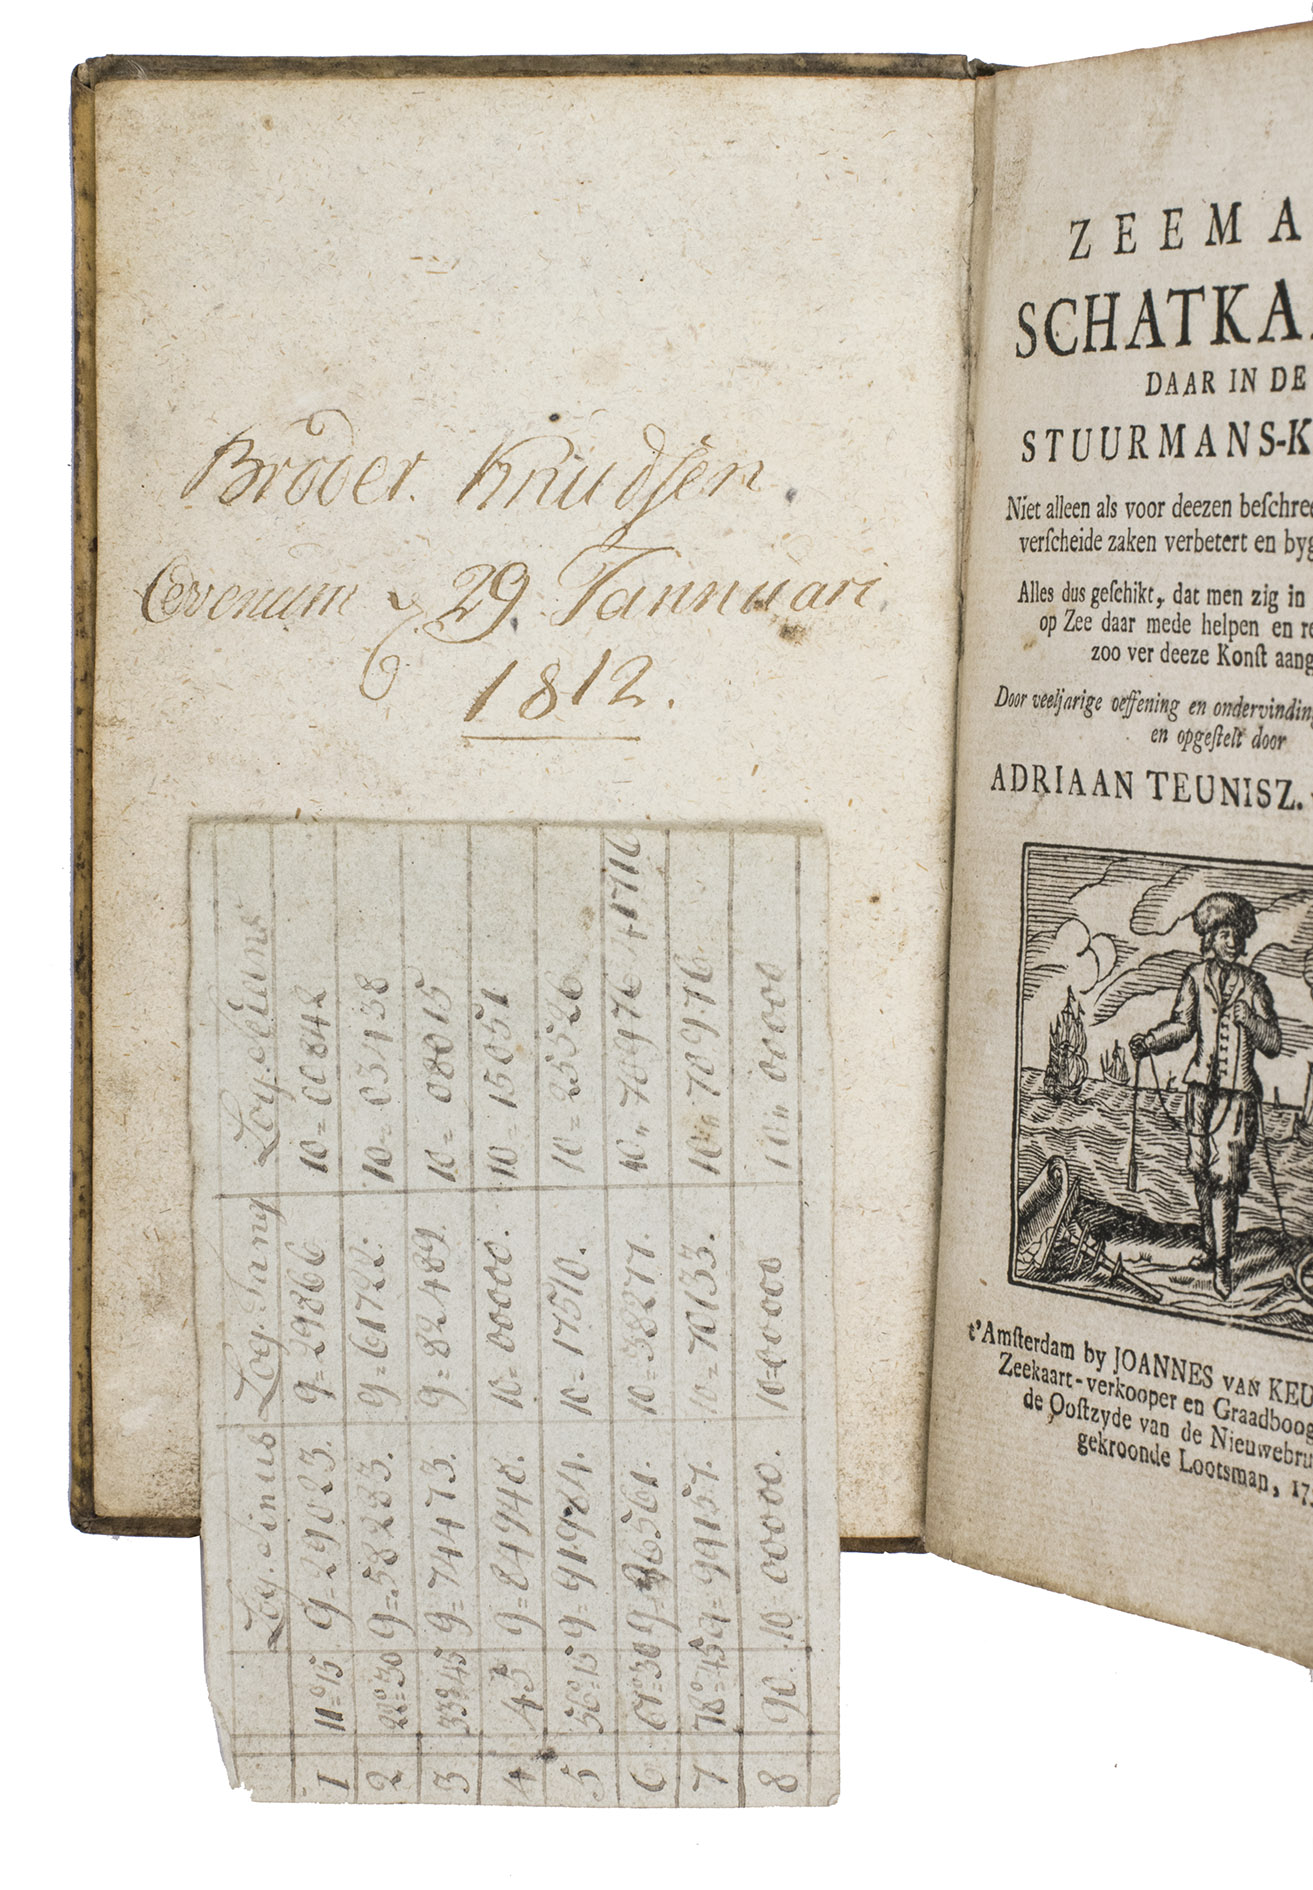 Bröder. Knudsen.
29. Jannuari
1812.
Log. Sinus Log. Tang Log. Secans
1 11°=15 9=29023. 9=29866 10=00842
2 22°=30 9=58283. 9=61722. 10=03438
3 33°=45 9=74473. 9=82489. 10=08015
4 45 9=84948. 10=00000. 10=15051
5 56°=15 9=91984. 10=17510. 10=25526
6 67°=30 9=96561. 10=38277. 10
7 78°=45 9=99157. 10=70133. 10"70976
8 90. 10=00000. 10=00000 10"00000
ZEEMA
SCHATKA
DAAR IN DE
STUURMANS-K
Niet alleen als voor deezen beſchree
verſcheide zaken verbetert en byg
Alles dus geſchikt, dat men zig in
op Zee daar mede helpen en re
zoo ver deeze Konſt aang
Door veeljarige oeffening en ondervinding
en opgeſtelt door
ADRIAAN TEUNISZ.
t'Amſterdam by JOANNES VAN KEU
Zeekaart-verkooper en Graadboog
de Ooſtzyde van de Nieuwebru
gekroonde Lootsman, 17